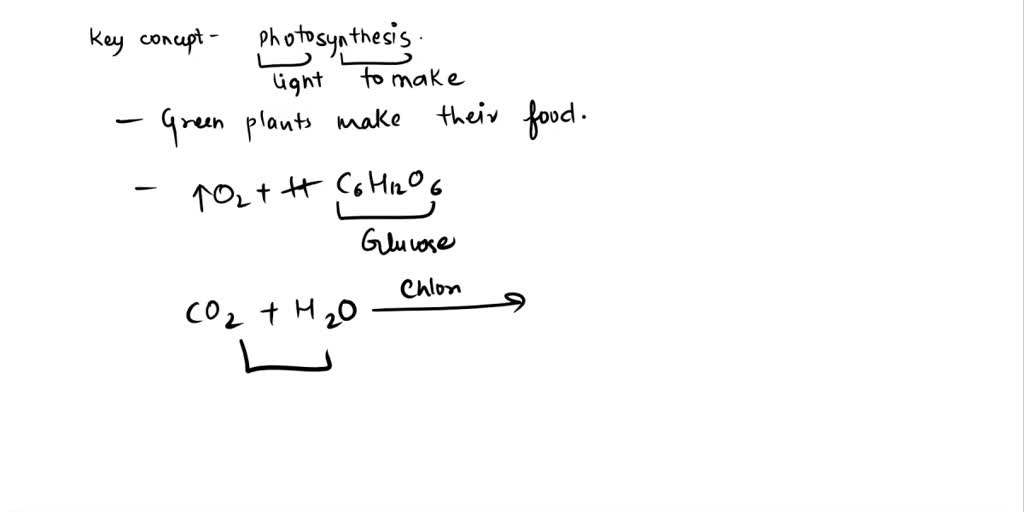 Key concept - Photosynthesis.
light to make
- Green plants make their food.
- ↑O₂ + C₆H₁₂O₆
Glucose
Chlon
CO₂ + H₂O →